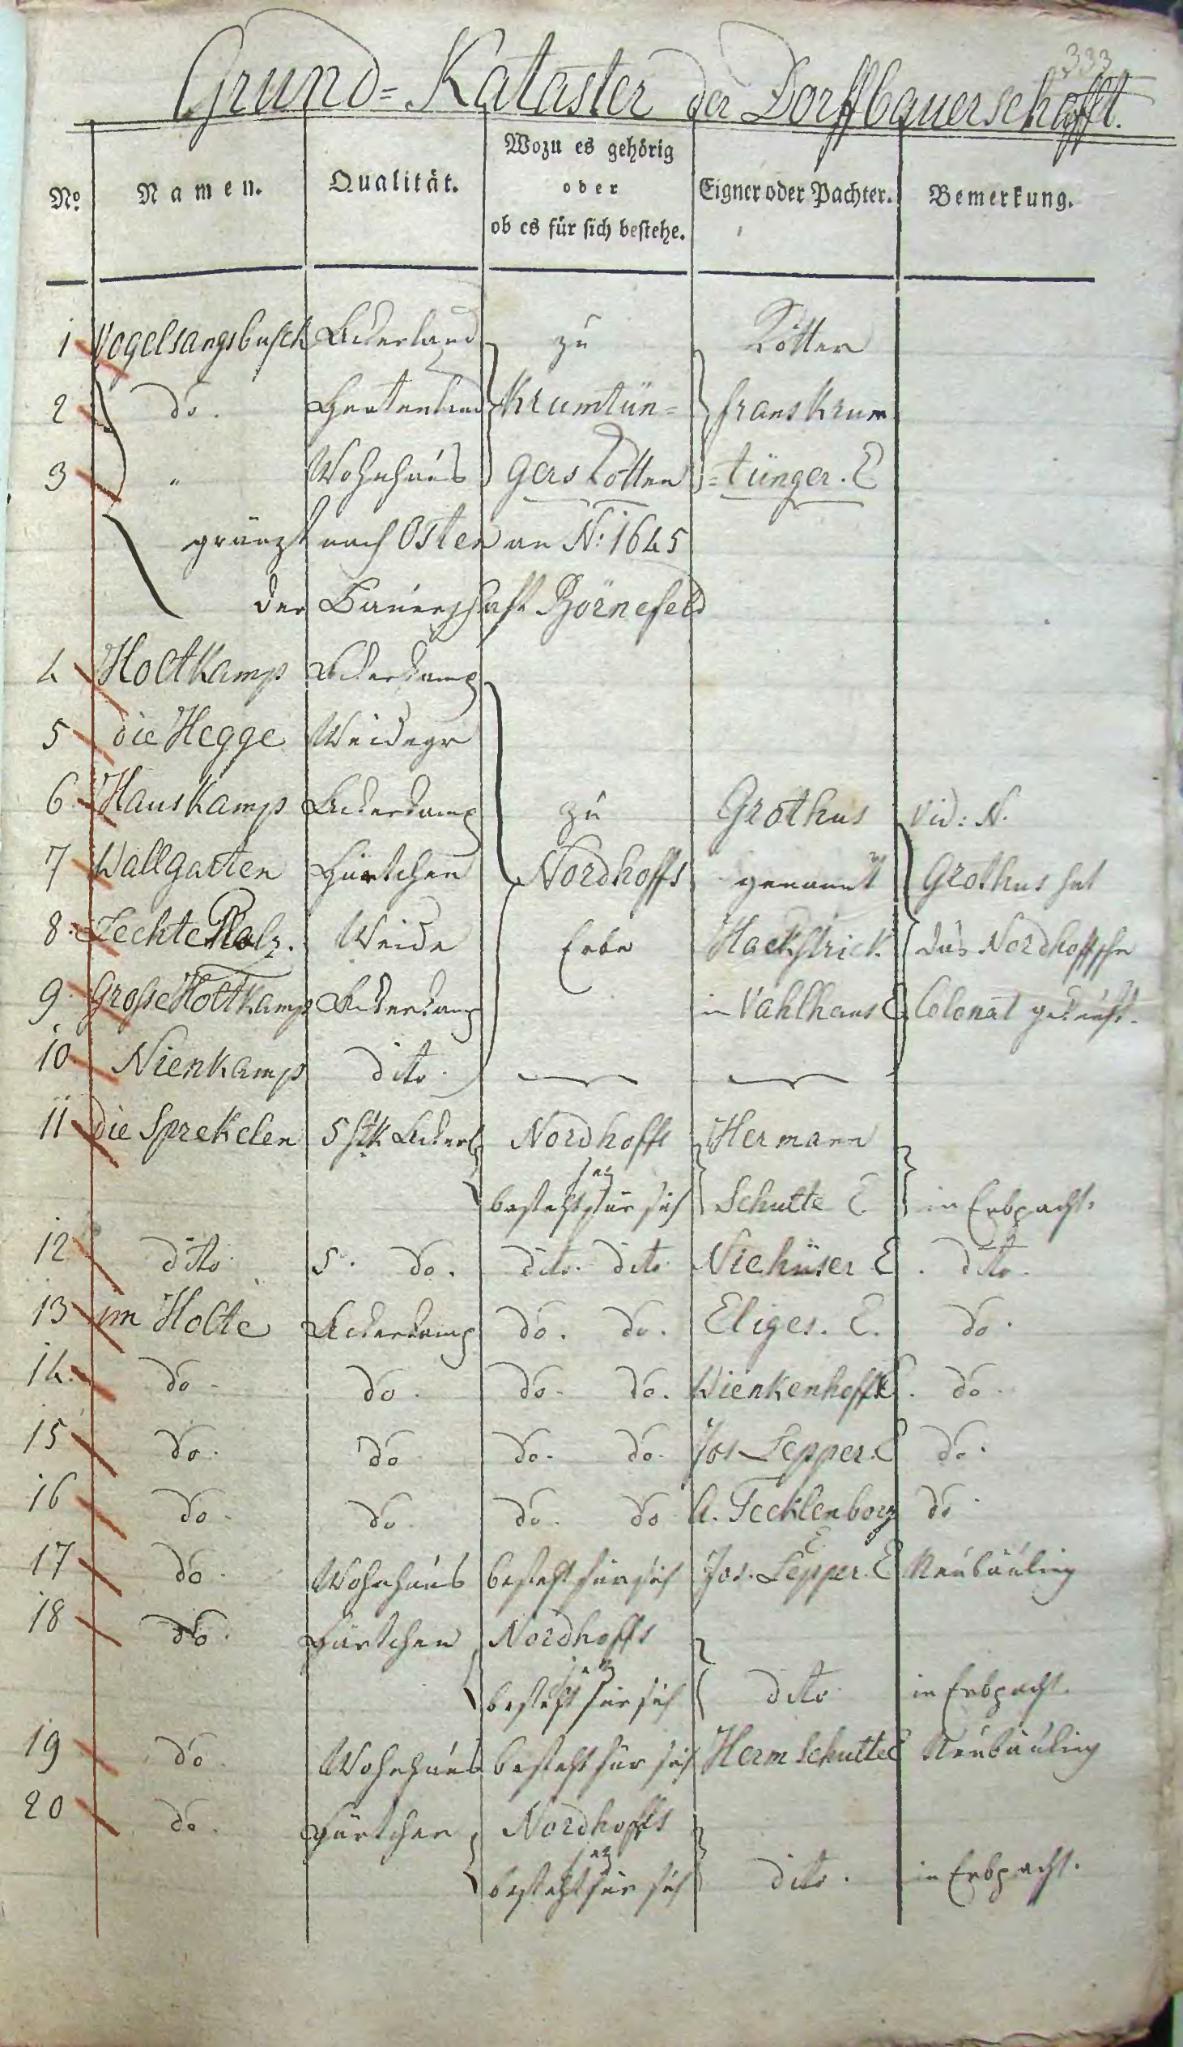 333
Grund=Kataster der Dorffbauerschafft.
No. Namen. Qualität. Wozu es gehörig oder ob es für sich bestehe. Eigner oder Pachter. Bemerkung.
1 Vogelsangsbusch Ackerland zu Kötter
2 do. Gartenland Krumtün= frans Krum
3 " Wohnhaus gers Kotten =tünger. E
gränzt nach Osten an N: 1645
der Bauerschaft Börnefeld
4 Holtkamp Ackerkamp
5 die Hegge Weidegr
6 Hauskamp Ackerkamp zu Grothus vid: N.
7 Wallgarten Gärtchen Nordhoffs genannt Grothus hat
8 Techte Platz. Weide Erbe Hackstrick. das Nordhoffsche
9 Große Holtkamp Ackerkamp in Vahlhaus E Colonat gekauft.
10 Nienkamp dito
11 die Sprekelen 5 Stk Ackerl Nordhoffs Hermann
jez
besteht für sich Schutte E in Erbpacht.
12 dito 5. do. dito. dito Niehüser E. dito.
13 im Holte Ackerkamp do. do. Eliges. E. do.
14. do. do. do. do. Wienkenhoff E. do.
15 do. do do. do. Jos Lepper. E do.
16 do. do. do. do A. Tecklenborg E do.
17 do. Wohnhaus besteht für sich Jos. Lepper. E Neubäuling
18 do. Gärtchen Nordhoffs
jez
besteht für sich dito in Erbpacht.
19 do. Wohnhaus besteht für sich Herm Schutte E Neubäuling
20 do. Gärtchen Nordhoffs
jez
besteht für sich dito. in Erbpacht.